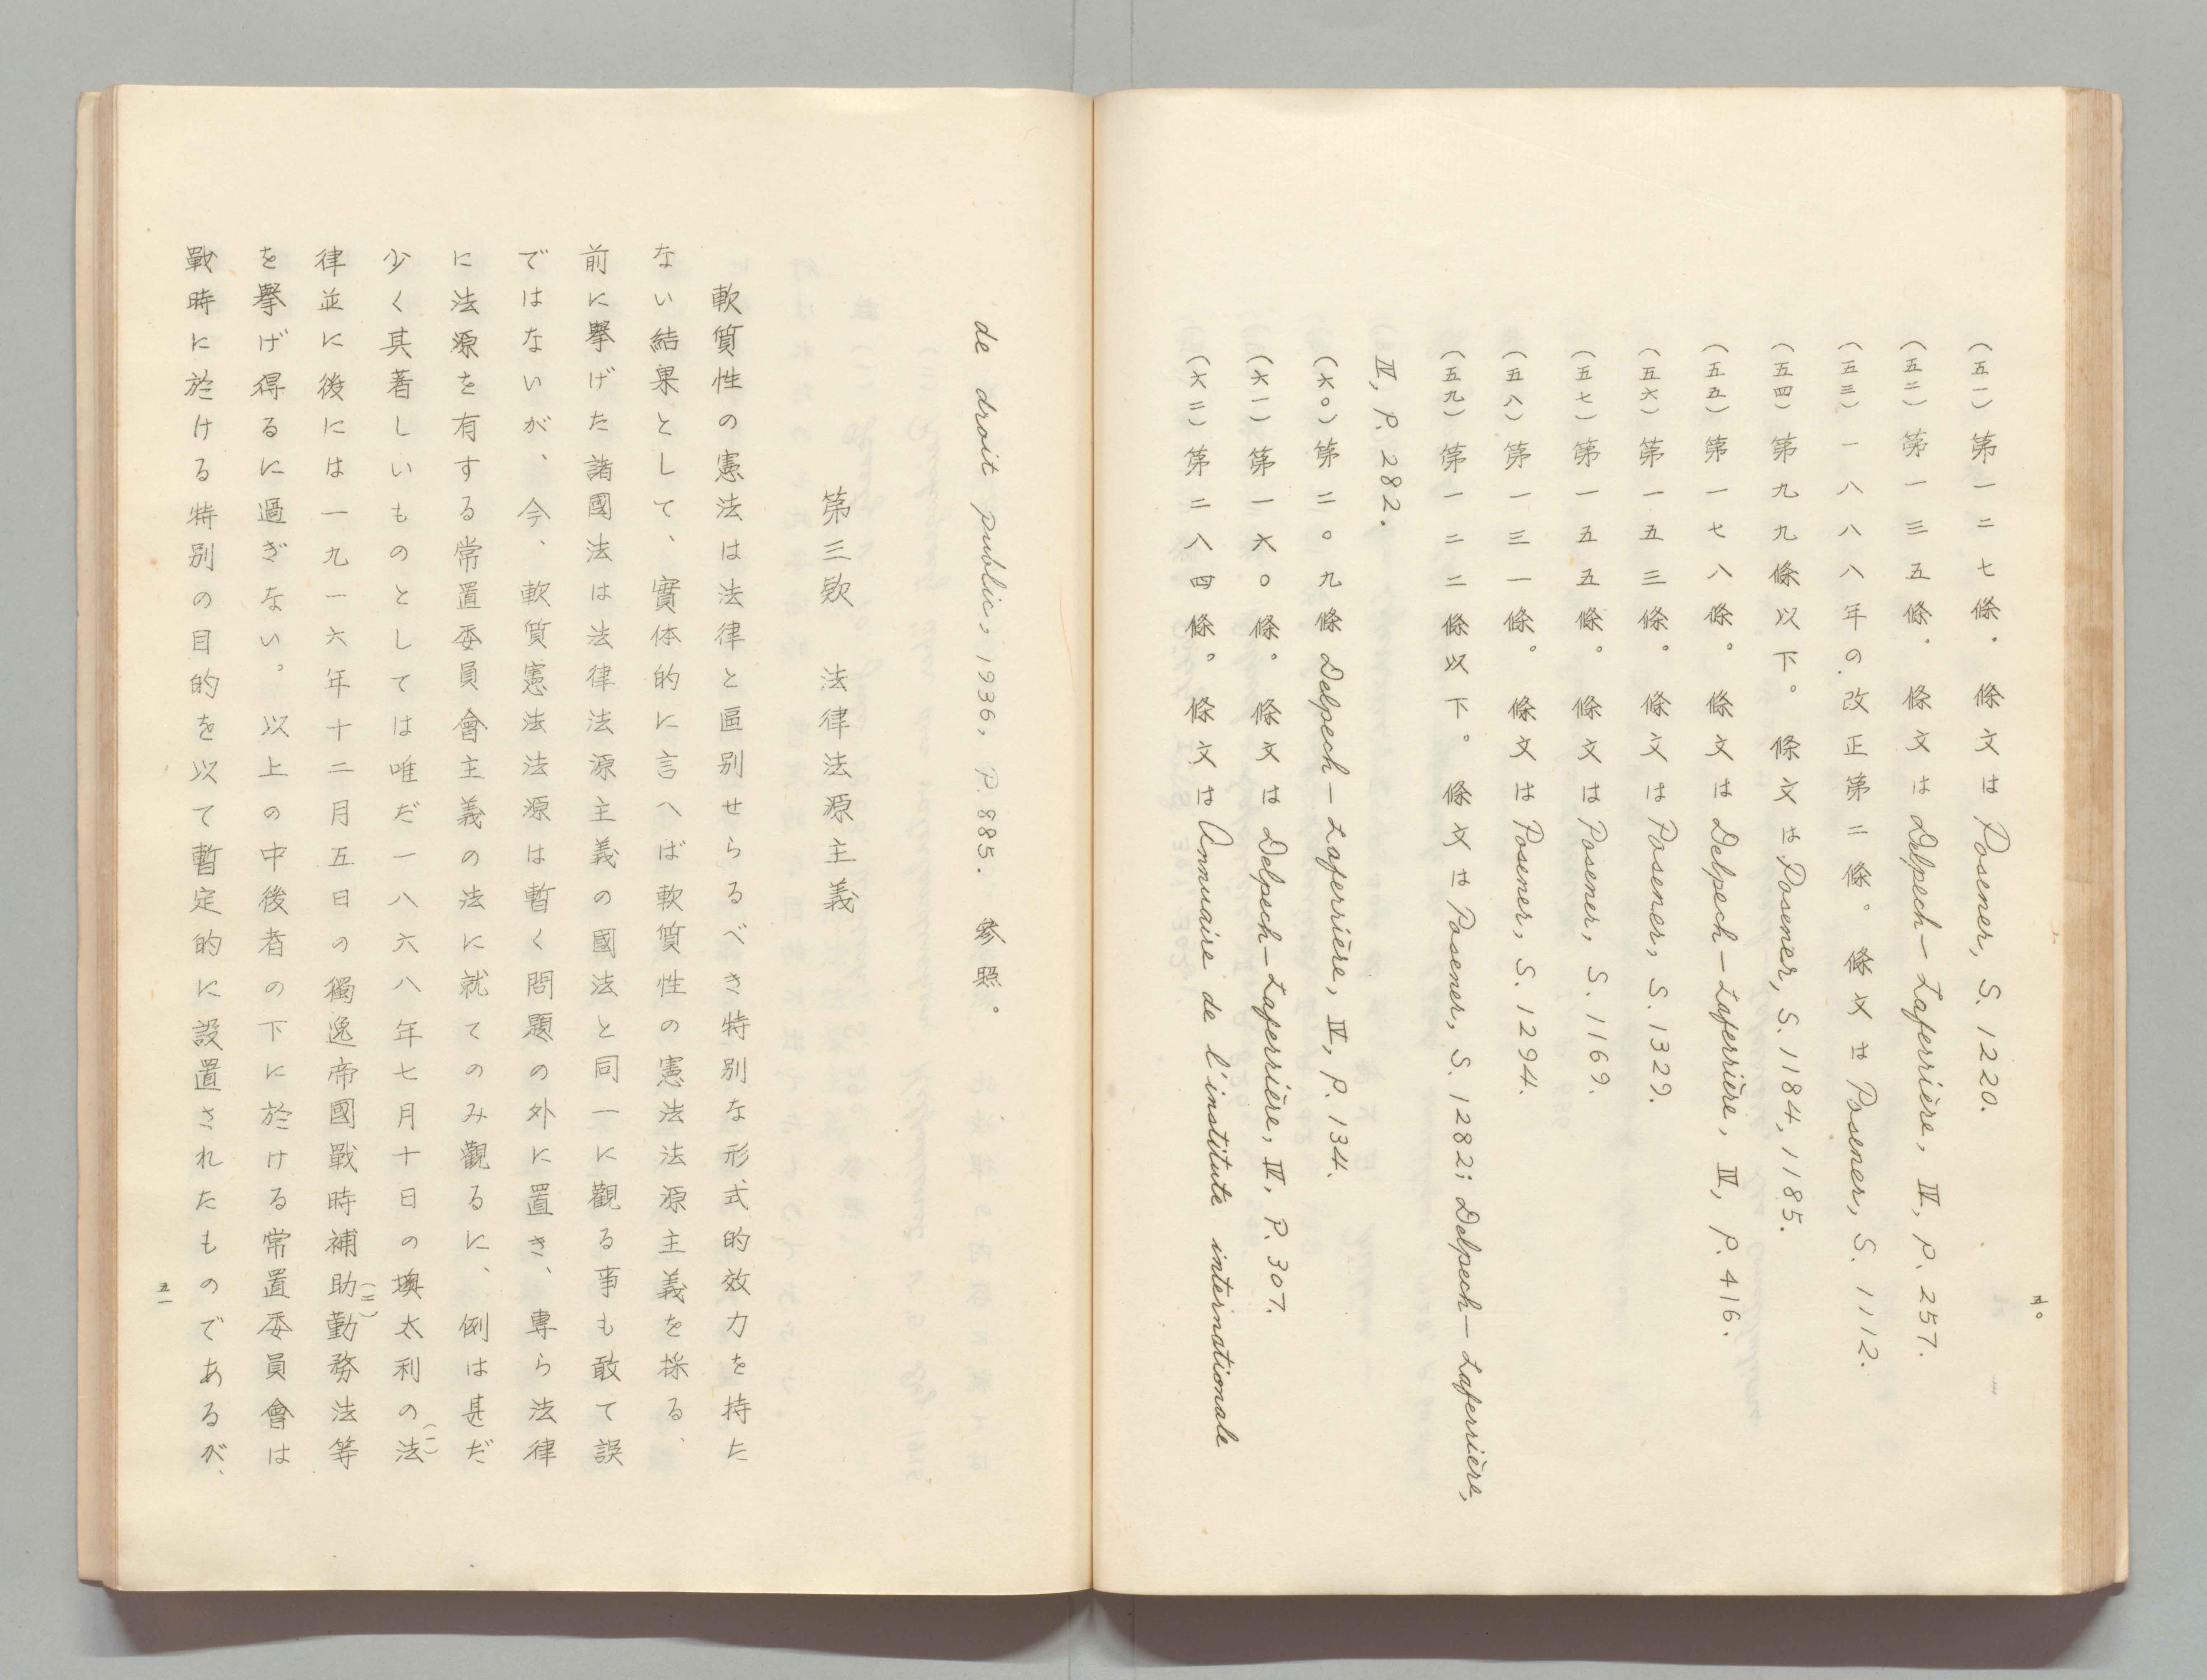 五〇
(五一)第一二七條。條文はPosener, S. 1220.
(五二)第一三五條。條文はDelpech—Laferrière, Ⅳ, P. 257.
(五三)一八八八年の改正第二條。條文はPosener, S. 1112.
(五四)第九九條以下。條文はPosener, S. 1184, 1185.
(五五)第一七八條。條文はDelpech—Laferrière, Ⅳ, P. 416.
(五六)第一五三條。條文はPosener, S. 1329.
(五七)第一五五條。條文はPosener, S. 1169.
(五八)第一三一條。條文はPosener, S. 1294.
(五九)第一二二條以下。條文はPosener, S. 1282; Delpech—Laferrière,
Ⅳ, P. 282.
(六〇)第二〇九條 Delpech—Laferrière, Ⅳ, P. 134.
(六一)第一六〇條。條文はDelpech—Laferrière, Ⅳ, P. 307.
(六二)第二八四條。條文はAnnuaire de l'institute internationale
de droit public, 1936, P. 885. 參照。
第三欵 法律法源主義
軟質性の憲法は法律と區別せらるべき特別な形式的效力を持た
ない結果として、實体的に言へば軟質性の憲法法源主義を採る、
前に擧げた諸國法は法律法源主義の國法と同一に觀る事も敢て誤
ではないが、今、軟質憲法法源は暫く問題の外に置き、專ら法律
に法源を有する常置委員會主義の法に就てのみ觀るに、例は甚だ
少く其著しいものとしては唯だ一八六八年七月十日の墺太利の法(一)
律並に後には一九一六年十二月五日の獨逸帝國戰時補助勤務法等(二)
を擧げ得るに過ぎない。以上の中後者の下に於ける常置委員會は
戰時に於ける特別の目的を以て暫定的に設置されたものであるが、
五一